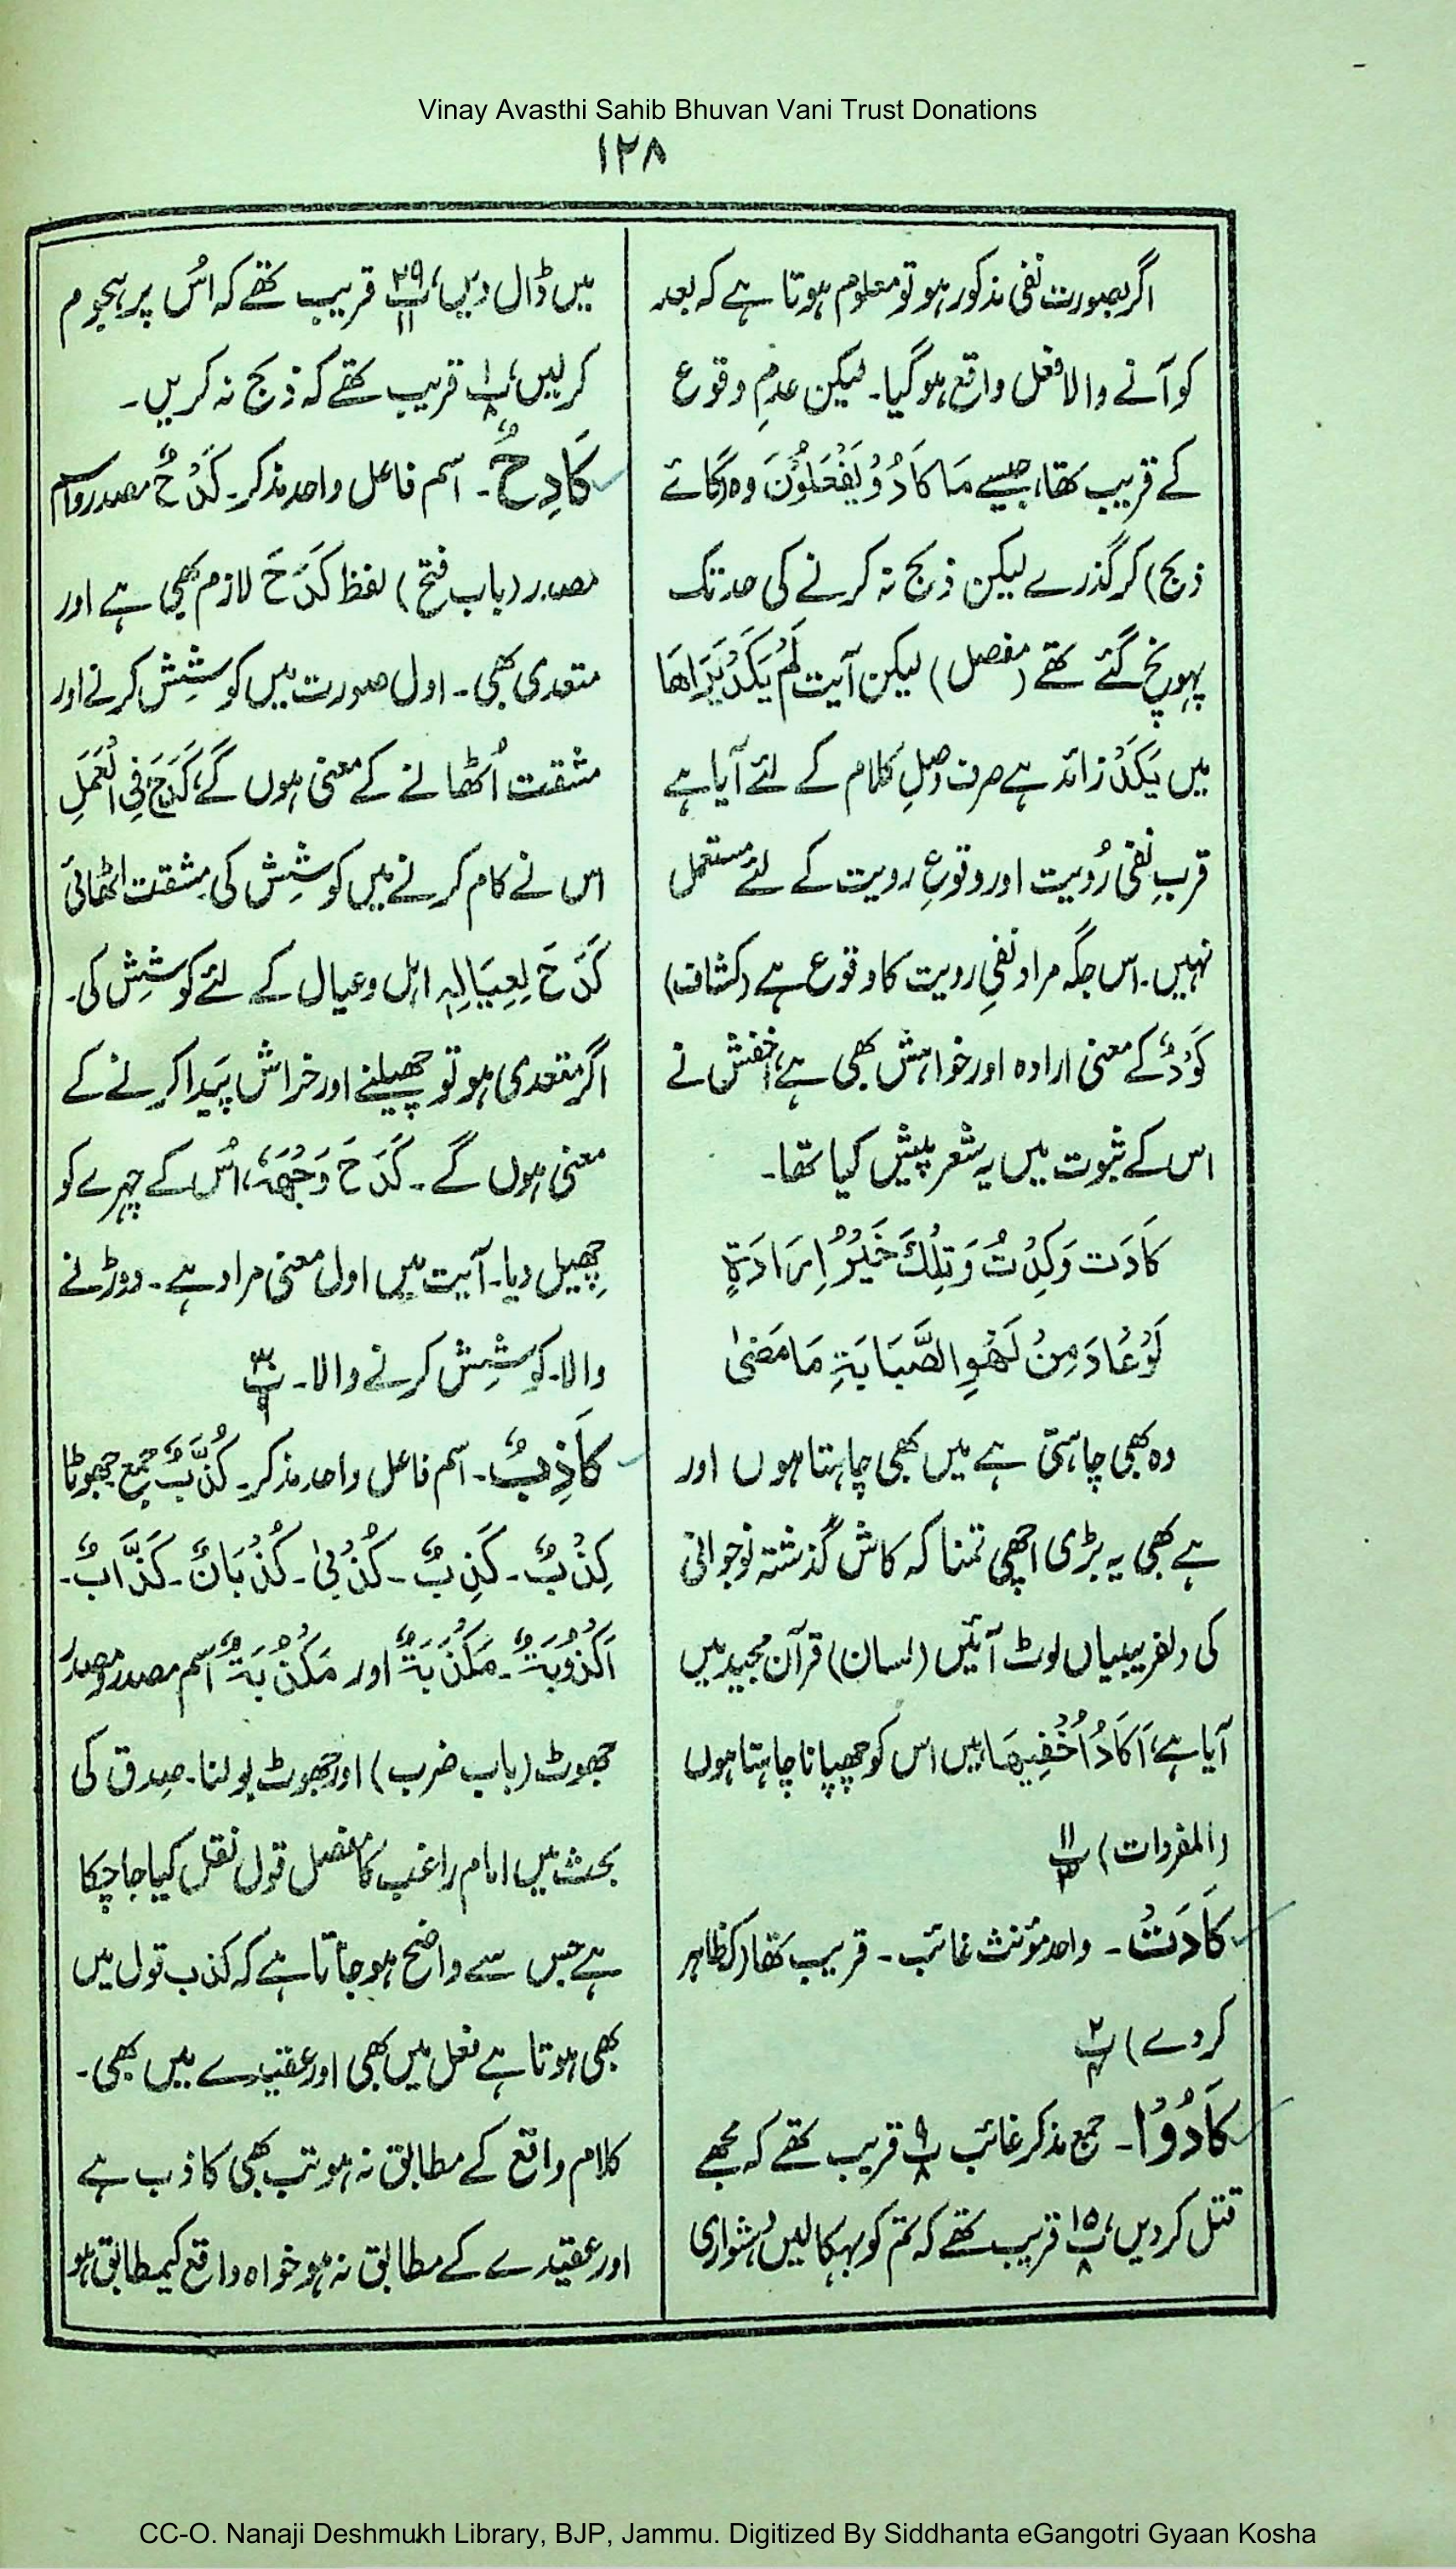 Vinay Avasthi Sahib Bhuvan Vani Trust Donations
۱۲۸
اگر بصورت نفی مذکور ہو تو معلوم ہوتا ہے کہ بعد
کو آنے والا فعل واقع ہو گیا۔ لیکن عدمِ وقوع
کے قریب تھا، جیسے مَا كَادُوْ يَفْعَلُوْنَ وہ (گائے
ذبح) کر گذرے لیکن ذبح نہ کرنے کی حد تک
پہونچ گئے تھے (مفصل) لیکن آیت لَمْ يَكَدْ يَرَاهَا
میں يَكَدْ زائد ہے صرف وصلِ کلام کے لئے آیا ہے
قربِ نفی رُویت اور وقوعِ رویت کے لئے مستعمل
نہیں۔ اس جگہ مراد نفیِ رویت کا وقوع ہے (کشاف)
كَوْدٌ کے معنی ارادہ اور خواہش بھی ہے، اخفش نے
اس کے ثبوت میں یہ شعر پیش کیا تھا۔
كَادَت وَكِدْتُ وَتِلْكَ خَيْرُ اِرَادَةٍ
لَوْ عَادَ مِنْ لَهْوِ الصَّبَابَةِ مَا مَضىٰ
وہ بھی چاہتی ہے میں بھی چاہتا ہوں اور
ہے بھی یہ بڑی اچھی تمنا کہ کاش گذشتہ نوجوانی
کی دلفریبیاں لوٹ آئیں (لسان) قرآن مجید میں
آیا ہے، اَكَادُ اُخْفِيهَا، میں اس کو چھپانا چاہتا ہوں
(المفردات) پ ۱۱
كَادَتْ۔ واحد مؤنث غائب۔ قریب تھا (کہ ظاہر
کر دے) پ ۲
كَادُوْا۔ جمع مذکر غائب پ ۹ ۸ قریب تھے کہ مجھے
قتل کر دیں، پ ۱۵ ۸ قریب تھے کہ تم کو بہکا لیں دشواری
میں ڈال دیں، پ ۲۹ ۱۱ قریب تھے کہ اُس پر ہجوم
کر لیں، پ ۱ ۸ قریب تھے کہ ذبح نہ کریں۔
كَادِحٌ۔ اسم فاعل واحد مذکر۔ كَدْحٌ مصدر و اسم
مصدر (باب فتح) لفظ كَدَحَ لازم بھی ہے اور
متعدی بھی۔ اول صورت میں کوشِش کرنے اور
مشقت اُٹھانے کے معنی ہوں گے، كَدَحَ فِي الْعَمَلِ
اس نے کام کرنے میں کوشِش کی مشقت اٹھائی
كَدَحَ لِعِيَالِهٖ اہل و عیال کے لئے کوشِش کی۔
اگر متعدی ہو تو چھیلنے اور خراش پَیدا کرنے کے
معنی ہوں گے۔ كَدَحَ وَجْهَهٗ، اُس کے چہرے کو
چھیل دیا۔ آیت میں اول معنی مراد ہے۔ دوڑنے
والا۔ کوشِش کرنے والا۔ پ ۳۰ ۹
كَاذِبٌ۔ اسم فاعل واحد مذکر۔ كُذَّبٌ جمع جھوٹا
كِذْبٌ۔ كَذِبٌ۔ كُذْبىٰ۔ كُذْبَانٌ۔ كَذَّابٌ۔
اَكْذُوْبَةٌ۔ مَكْذَبَةٌ اور مَكْذُبَةٌ اسم مصدر و مصدر
جھوٹ (باب ضرب) اور جھوٹ بولنا۔ صدق کی
بحث میں امام راغب کا مفصل قول نقل کیا جا چکا
ہے جس سے واضح ہو جاتا ہے کہ کذب قول میں
بھی ہوتا ہے فعل میں بھی اور عقیدے میں بھی۔
کلام واقع کے مطابق نہ ہو تب بھی کاذب ہے
اور عقیدے کے مطابق نہ ہو خواہ واقع کیمطابق ہو
CC-O. Nanaji Deshmukh Library, BJP, Jammu. Digitized By Siddhanta eGangotri Gyaan Kosha